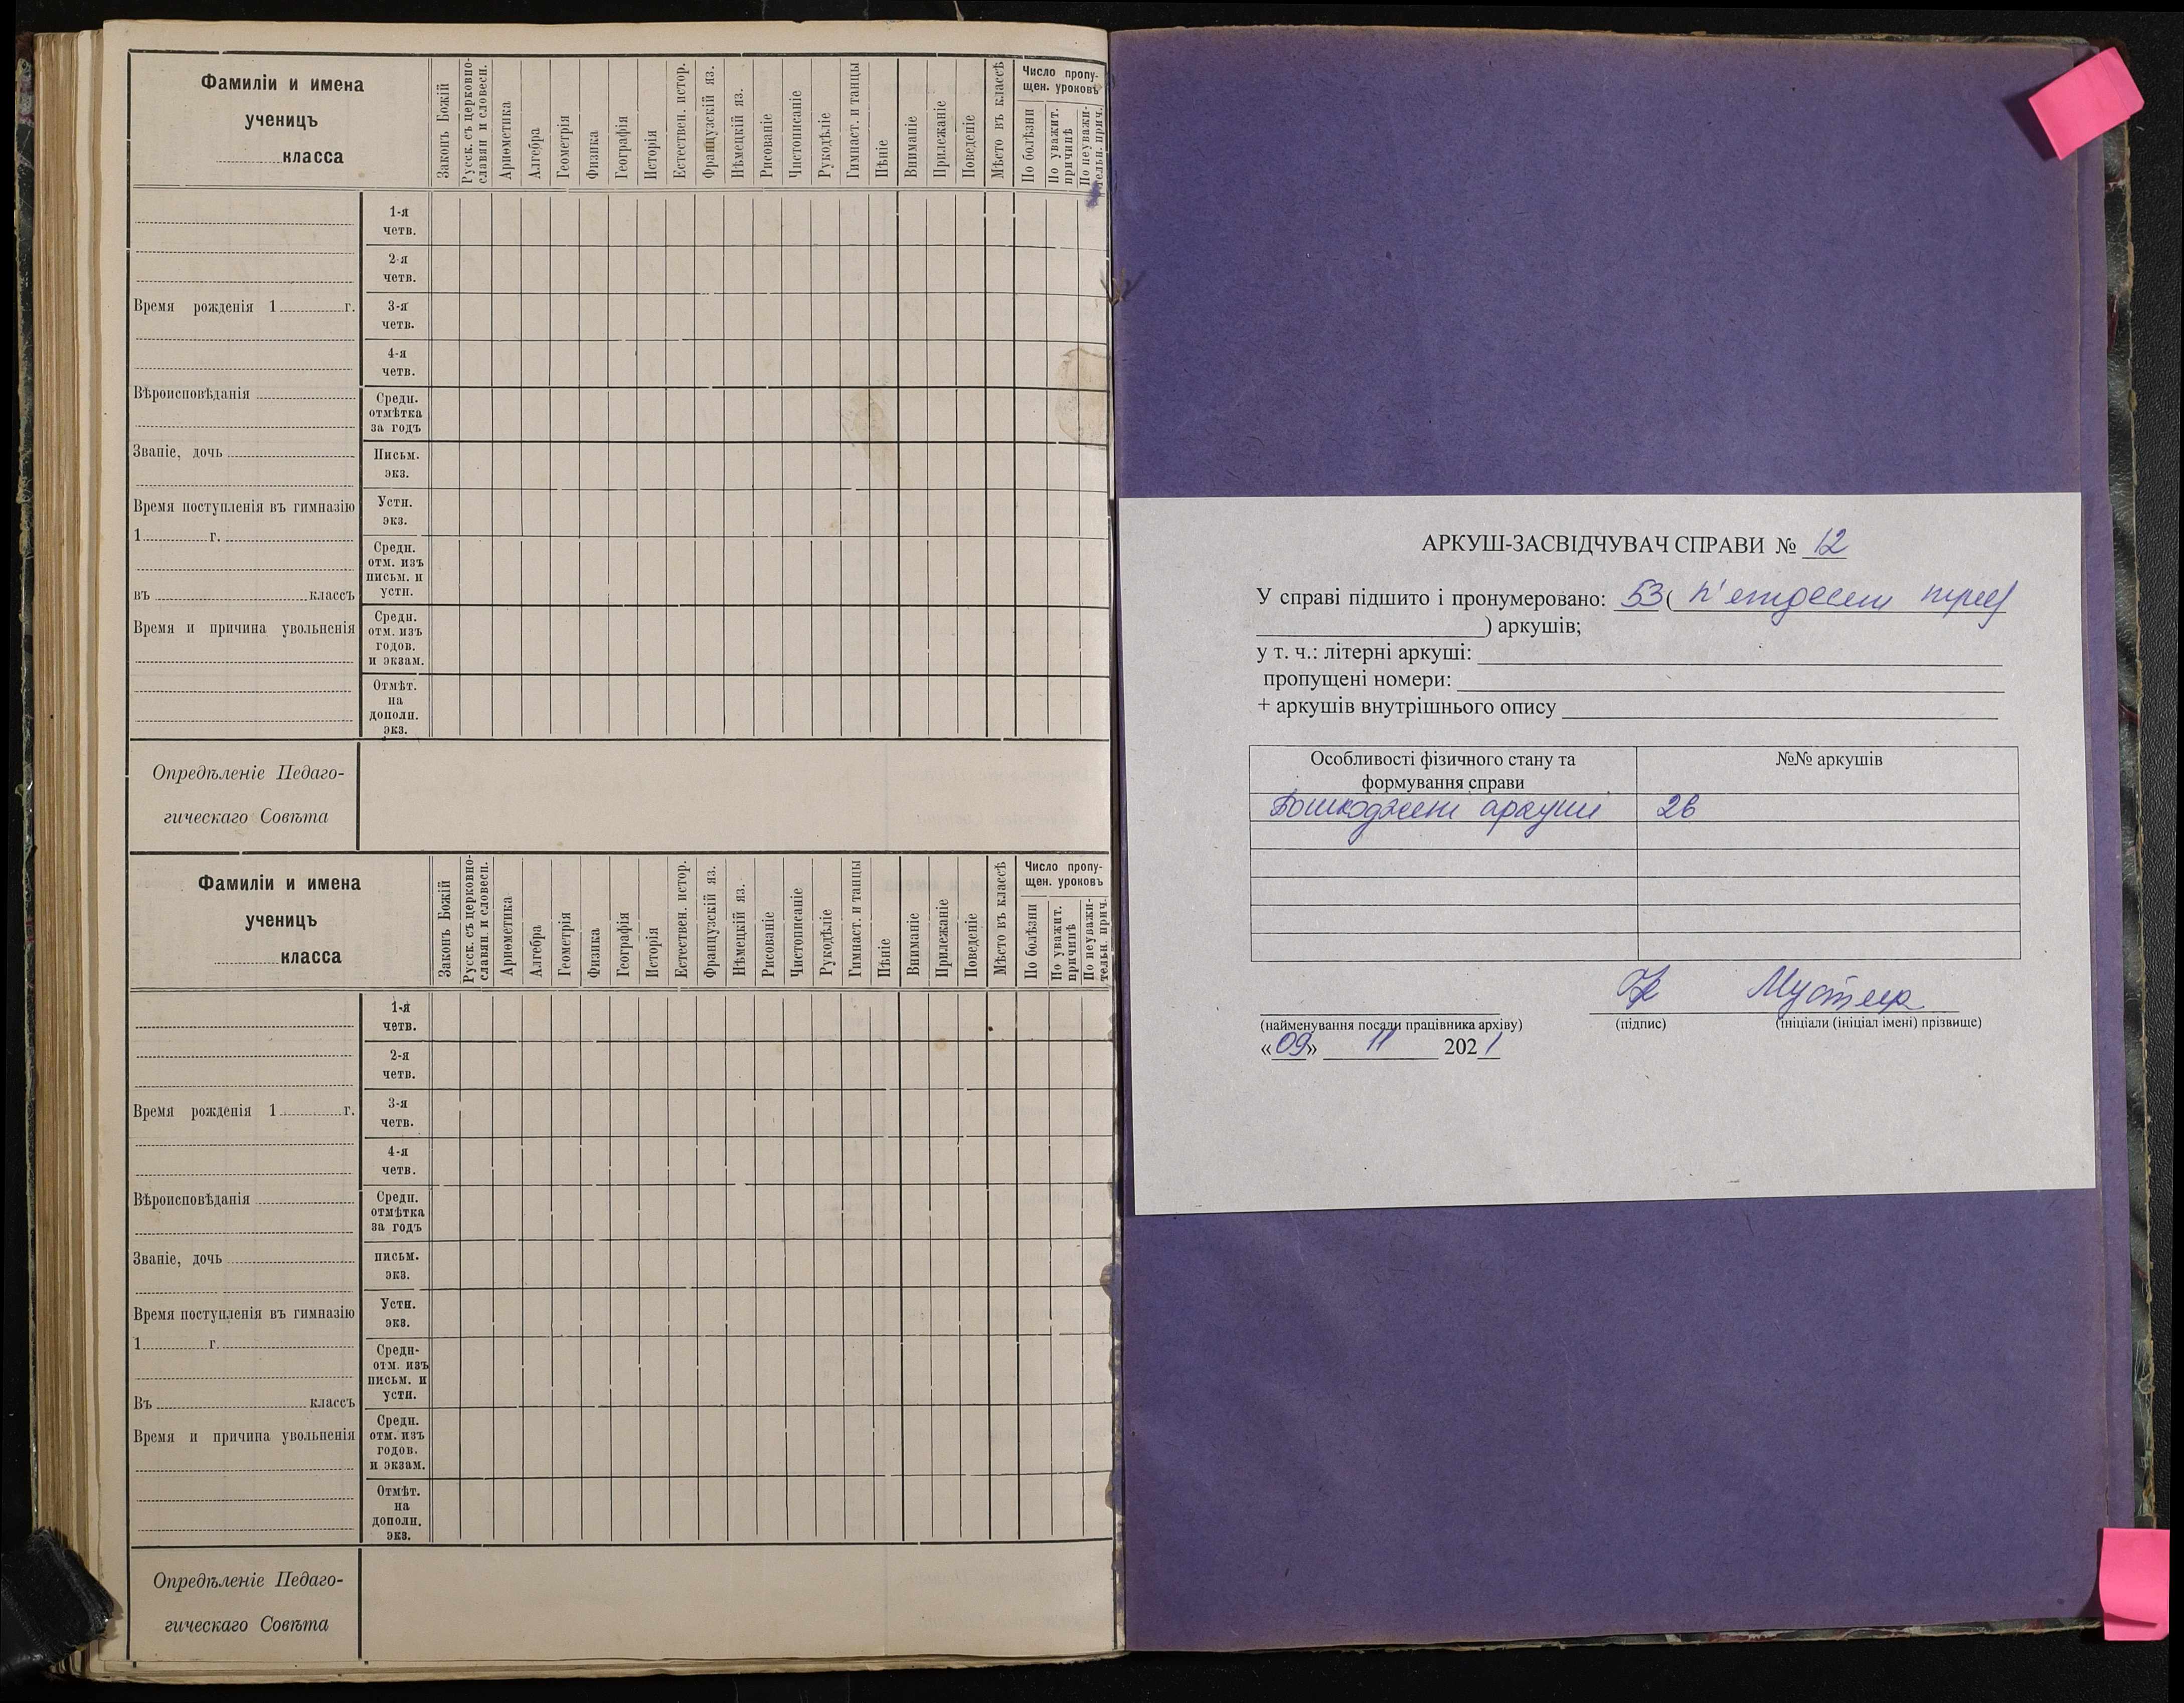 Фамиліи и имена
ученицъ
............класса
Законъ Божій
Русск. съ церковно-
славян. и словесн.
Ариѳметика
Алгебра
Геометрія
Физика
Географія
Исторія
Естествен. истор.
Французскій яз.
Нѣмецкій яз.
Рисованіе
Чистописаніе
Рукодѣліе
Гимнаст. и танцы
Пѣніе
Вниманіе
Прилежаніе
Поведеніе
Мѣсто въ классѣ
Число пропу-
щен. уроковъ
По болѣзни
По уважит.
причинѣ
По неуважи-
тельн. прич.
1-я
четв.
2-я
четв.
Время рожденія 1............г.
3-я
четв.
4-я
четв.
Вѣроисповѣданія
Средн.
отмѣтка
за годъ
Званіе, дочь
Письм.
экз.
Время поступленія въ гимназію
1............г.
Устн.
экз.
Средн.
отм. изъ
письм. и
устн.
въ ............ классъ
Время и причина увольненія
Средн.
отм. изъ
годов.
и экзам.
Отмѣт.
на
дополн.
экз.
Опредѣленіе Педаго-
гическаго Совѣта
Фамиліи и имена
ученицъ
............класса
Законъ Божій
Русск. съ церковно-
славян. и словесн.
Ариѳметика
Алгебра
Геометрія
Физика
Географія
Исторія
Естествен. истор.
Французскій яз.
Нѣмецкій яз.
Рисованіе
Чистописаніе
Рукодѣліе
Гимнаст. и танцы
Пѣніе
Вниманіе
Прилежаніе
Поведеніе
Мѣсто въ классѣ
Число пропу-
щен. уроковъ
По болѣзни
По уважит.
причинѣ
По неуважи-
тельн. прич.
1-я
четв.
2-я
четв.
Время рожденія 1............г.
3-я
четв.
4-я
четв.
Вѣроисповѣданія
Средн.
отмѣтка
за годъ
Званіе, дочь
письм.
экз.
Время поступленія въ гимназію
1............г.
Устн.
экз.
Средн-
отм. изъ
письм. и
устн.
Въ ............ классъ
Время и причина увольненія
Средн.
отм. изъ
годов.
и экзам.
Отмѣт.
на
дополн.
экз.
Опредѣленіе Педаго-
гическаго Совѣта
АРКУШ-ЗАСВІДЧУВАЧ СПРАВИ № 12
У справі підшито і пронумеровано: 53 ( п'ятдесят три
) аркушів;
у т. ч.: літерні аркуші:
пропущені номери:
+ аркушів внутрішнього опису
Особливості фізичного стану та
формування справи
№№ аркушів
Пошкоджені аркуші 26
(найменування посади працівника архіву) (підпис) (ініціали (ініціал імені) прізвище)
«09» 11 2021